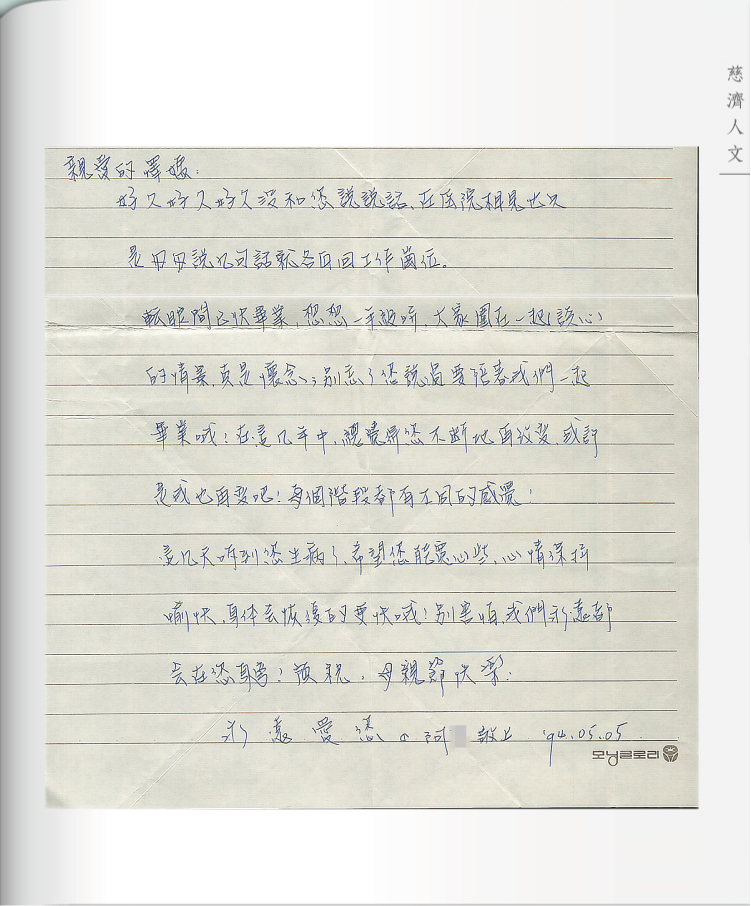 慈濟人文
親愛的懌媽:
好久好久好久沒和您說說話,在医院相見也只
是匆匆說几句話就各自回工作崗位。
轉眼間已快畢業,想想一年級時,大家圍在一起談心
的情景,真是懷念;別忘了您說過要陪著我們一起
畢業哦!在這几年中,總覺得您不斷地再改變,或許
是我也再變吧!每個階段都有不同的感覺!
這几天听到您生病了,希望您能寬心些,心情保持
愉快,身体会恢復的更快哦!別害怕,我們永遠都
会在您身旁!預祝,母親節快樂!
永遠愛您的 阿 敬上 '94.05.05
모닝글로리